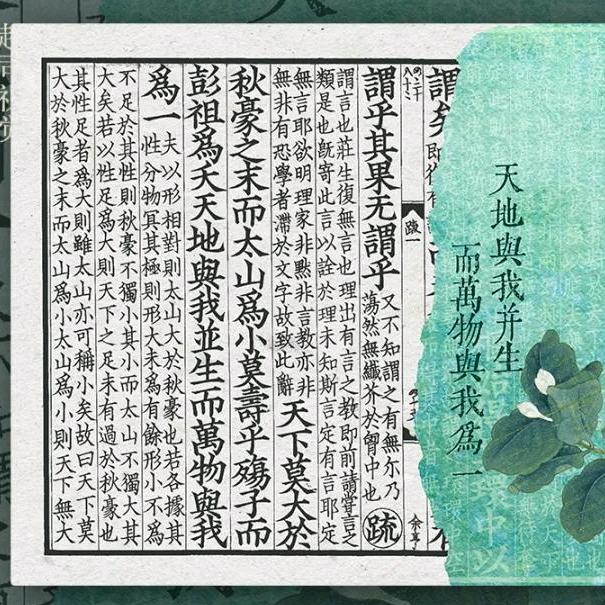 天地與我并生
而萬物與我爲一
謂矣
疏一
余亨
謂乎其果无謂乎
又不知謂之有無尓乃
蕩然無纖芥於胷中也
疏
謂言也莊生復無言也理出有言之教即前請嘗言之
類是也旣寄此言以詮於理未知斯言定有言耶定
無言耶欲明理家非默非言教亦非
無非有恐學者滯於文字故致此辭
天下莫大於
秋豪之末而太山爲小莫壽乎殤子而
彭祖爲夭天地與我並生而萬物與我
爲一
夫以形相對則太山大於秋豪也若各據其
性分物冥其極則形大未爲有餘形小不爲
不足於其性則秋豪不獨小其小而太山不獨大其
大矣若以性足爲大則天下之足未有過於秋豪也
其性足者爲大則雖太山亦可稱小矣故曰天下莫
大於秋豪之末而太山爲小太山爲小則天下無大